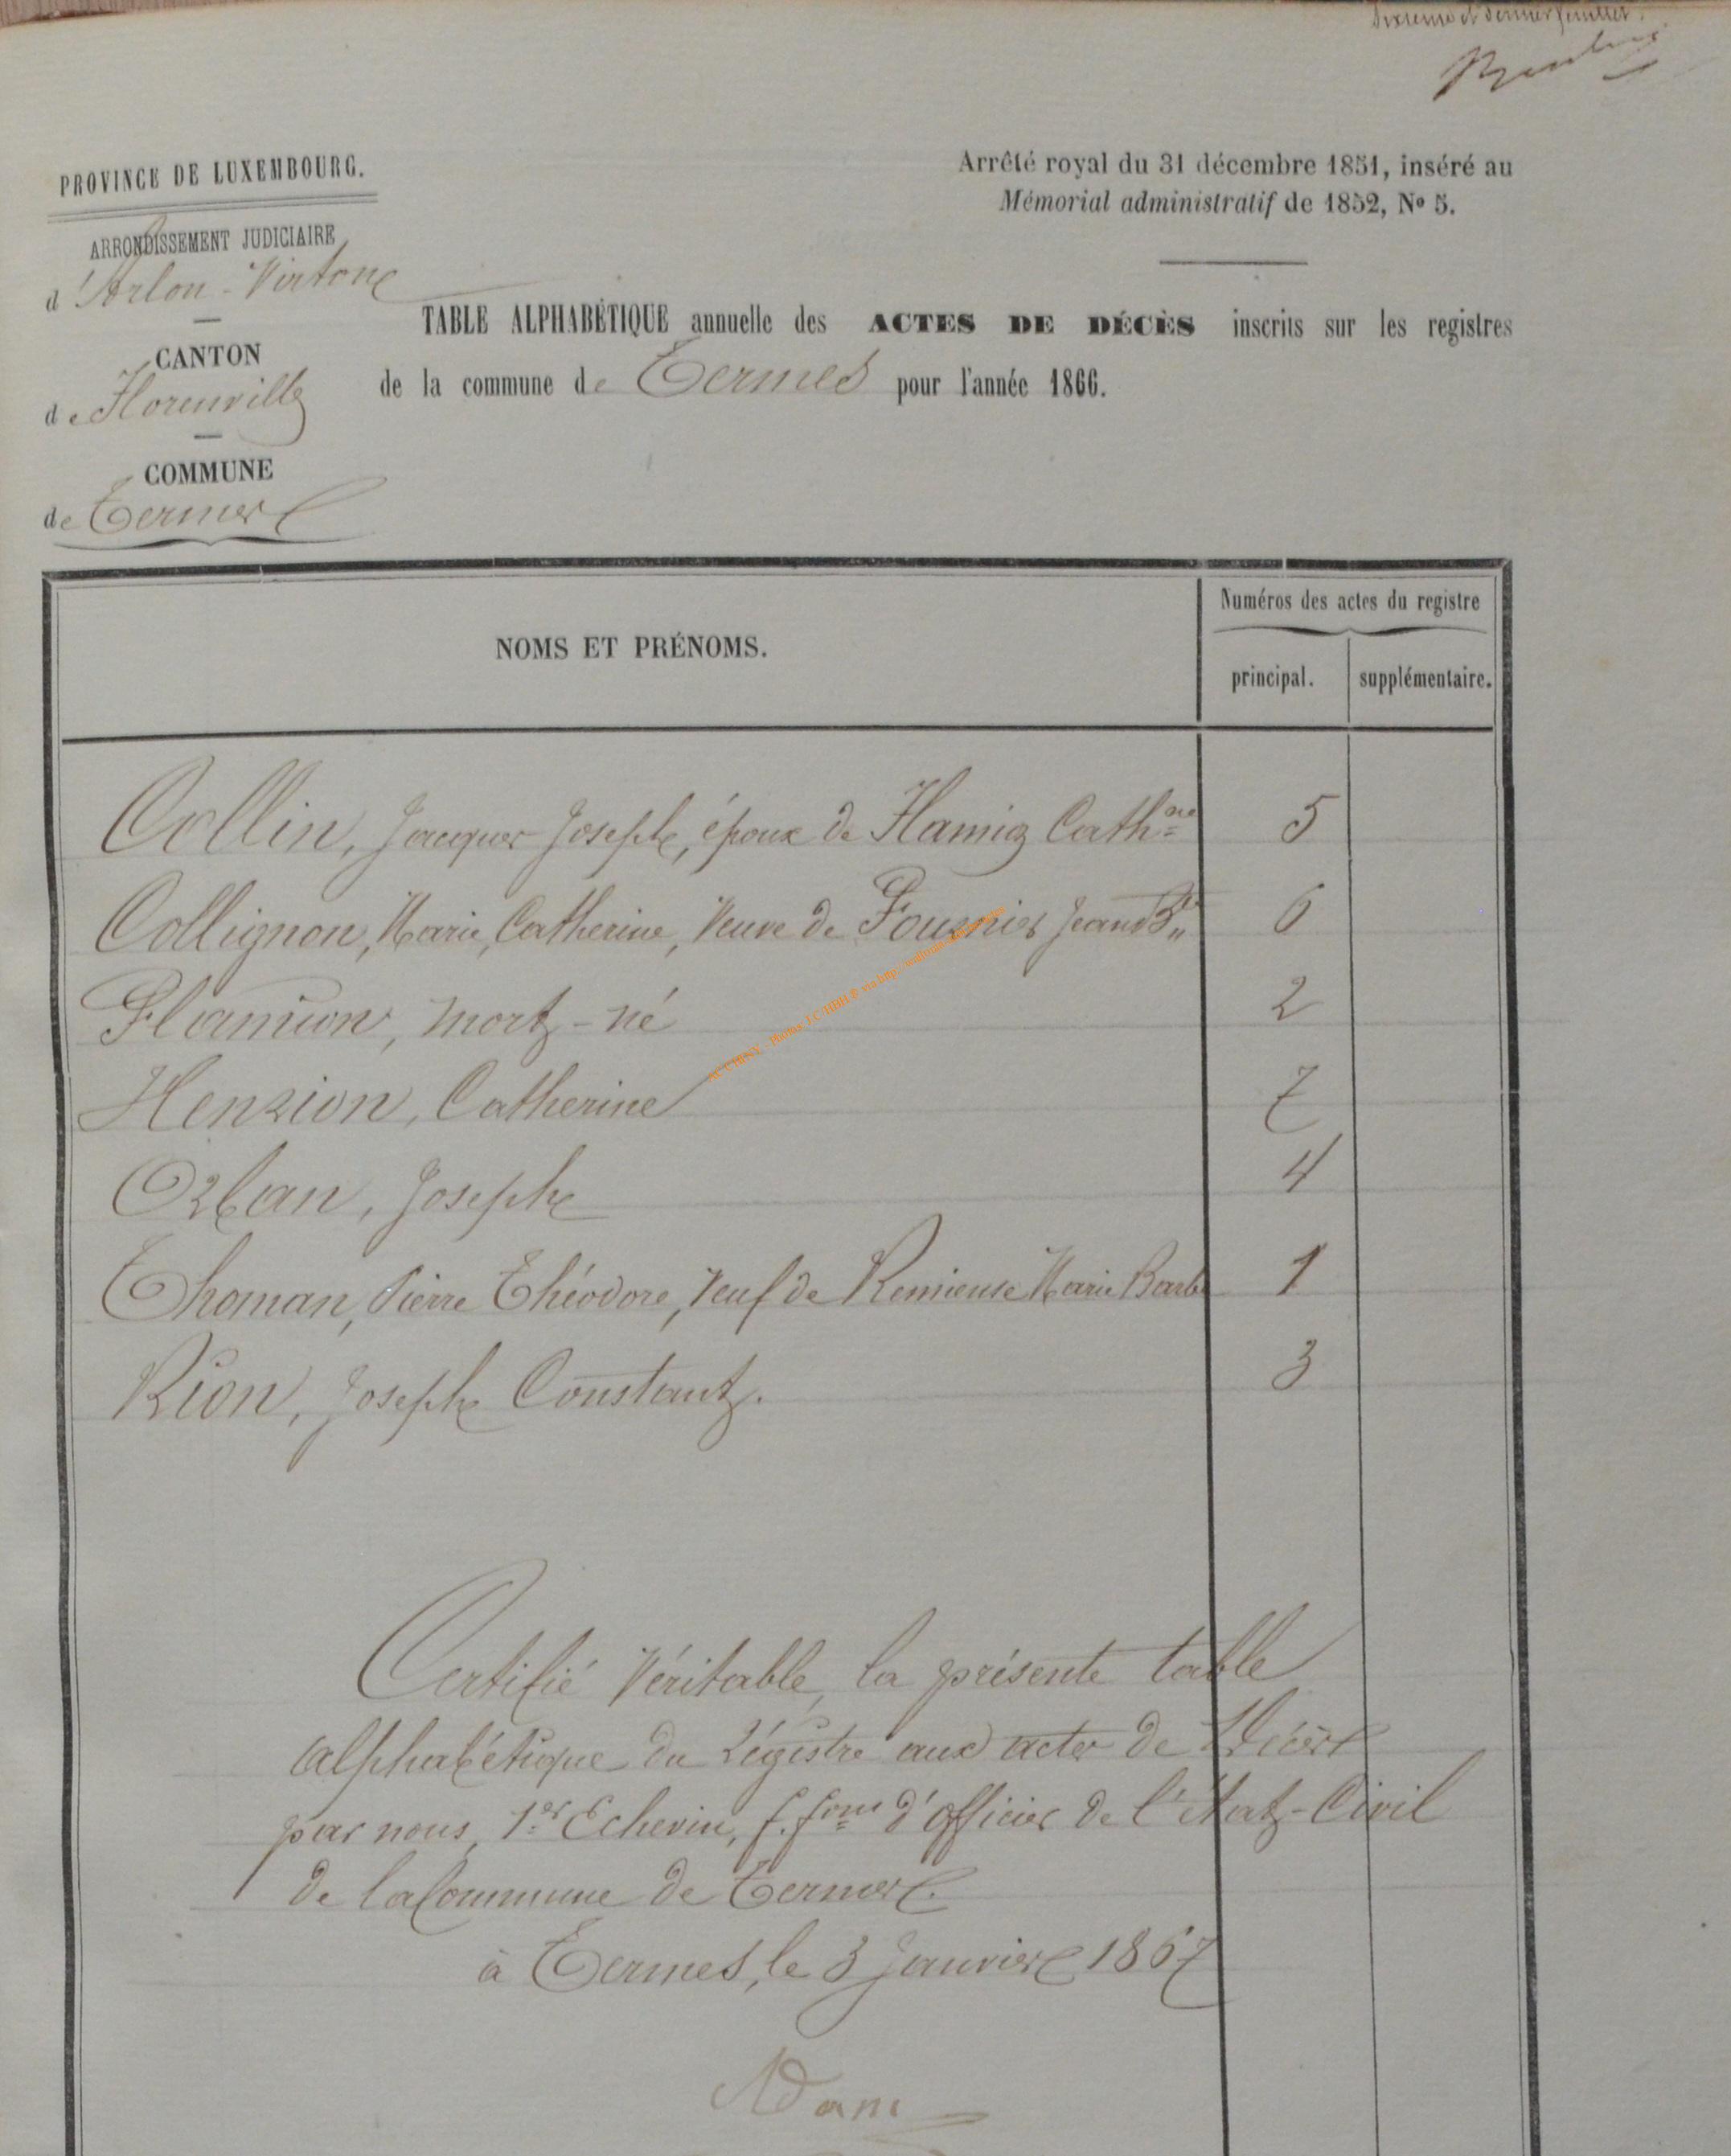 Sixième et dernier feuillet.
PROVINCE DE LUXEMBOURG.
Arrêté royal du 31 décembre 1851, inséré au
Mémorial administratif de 1852, No 5.
ARRONDISSEMENT JUDICIAIRE
d'Arlon-Virton
TABLE ALPHABÉTIQUE annuelle des ACTES DE DÉCÈS inscrits sur les registres
de la commune de Termes pour l'année 1866.
CANTON
de Florenville
COMMUNE
de Termes
NOMS ET PRÉNOMS.
Numéros des actes du registre
principal.
supplémentaire.
Collin, Jacques Joseph, époux de Cathne 5
Collignon, Marie, Catherine, Veuve de Fournier Jean Bte 6
Flamion, mort-né 2
Henrion, Catherine 7
Orban, Joseph 4
Thoman, Pierre Théodore, Veuf de Marie Barbe 1
Rion, Joseph Constant. 3
Certifié Véritable, la présente table
alphabétique du régistre aux actes de Décès
par nous, 1er Echevin, f. fons d'officier de l'état-Civil
de la Commune de Termes.
à Termes, le 3 Janvier 1867
Adam